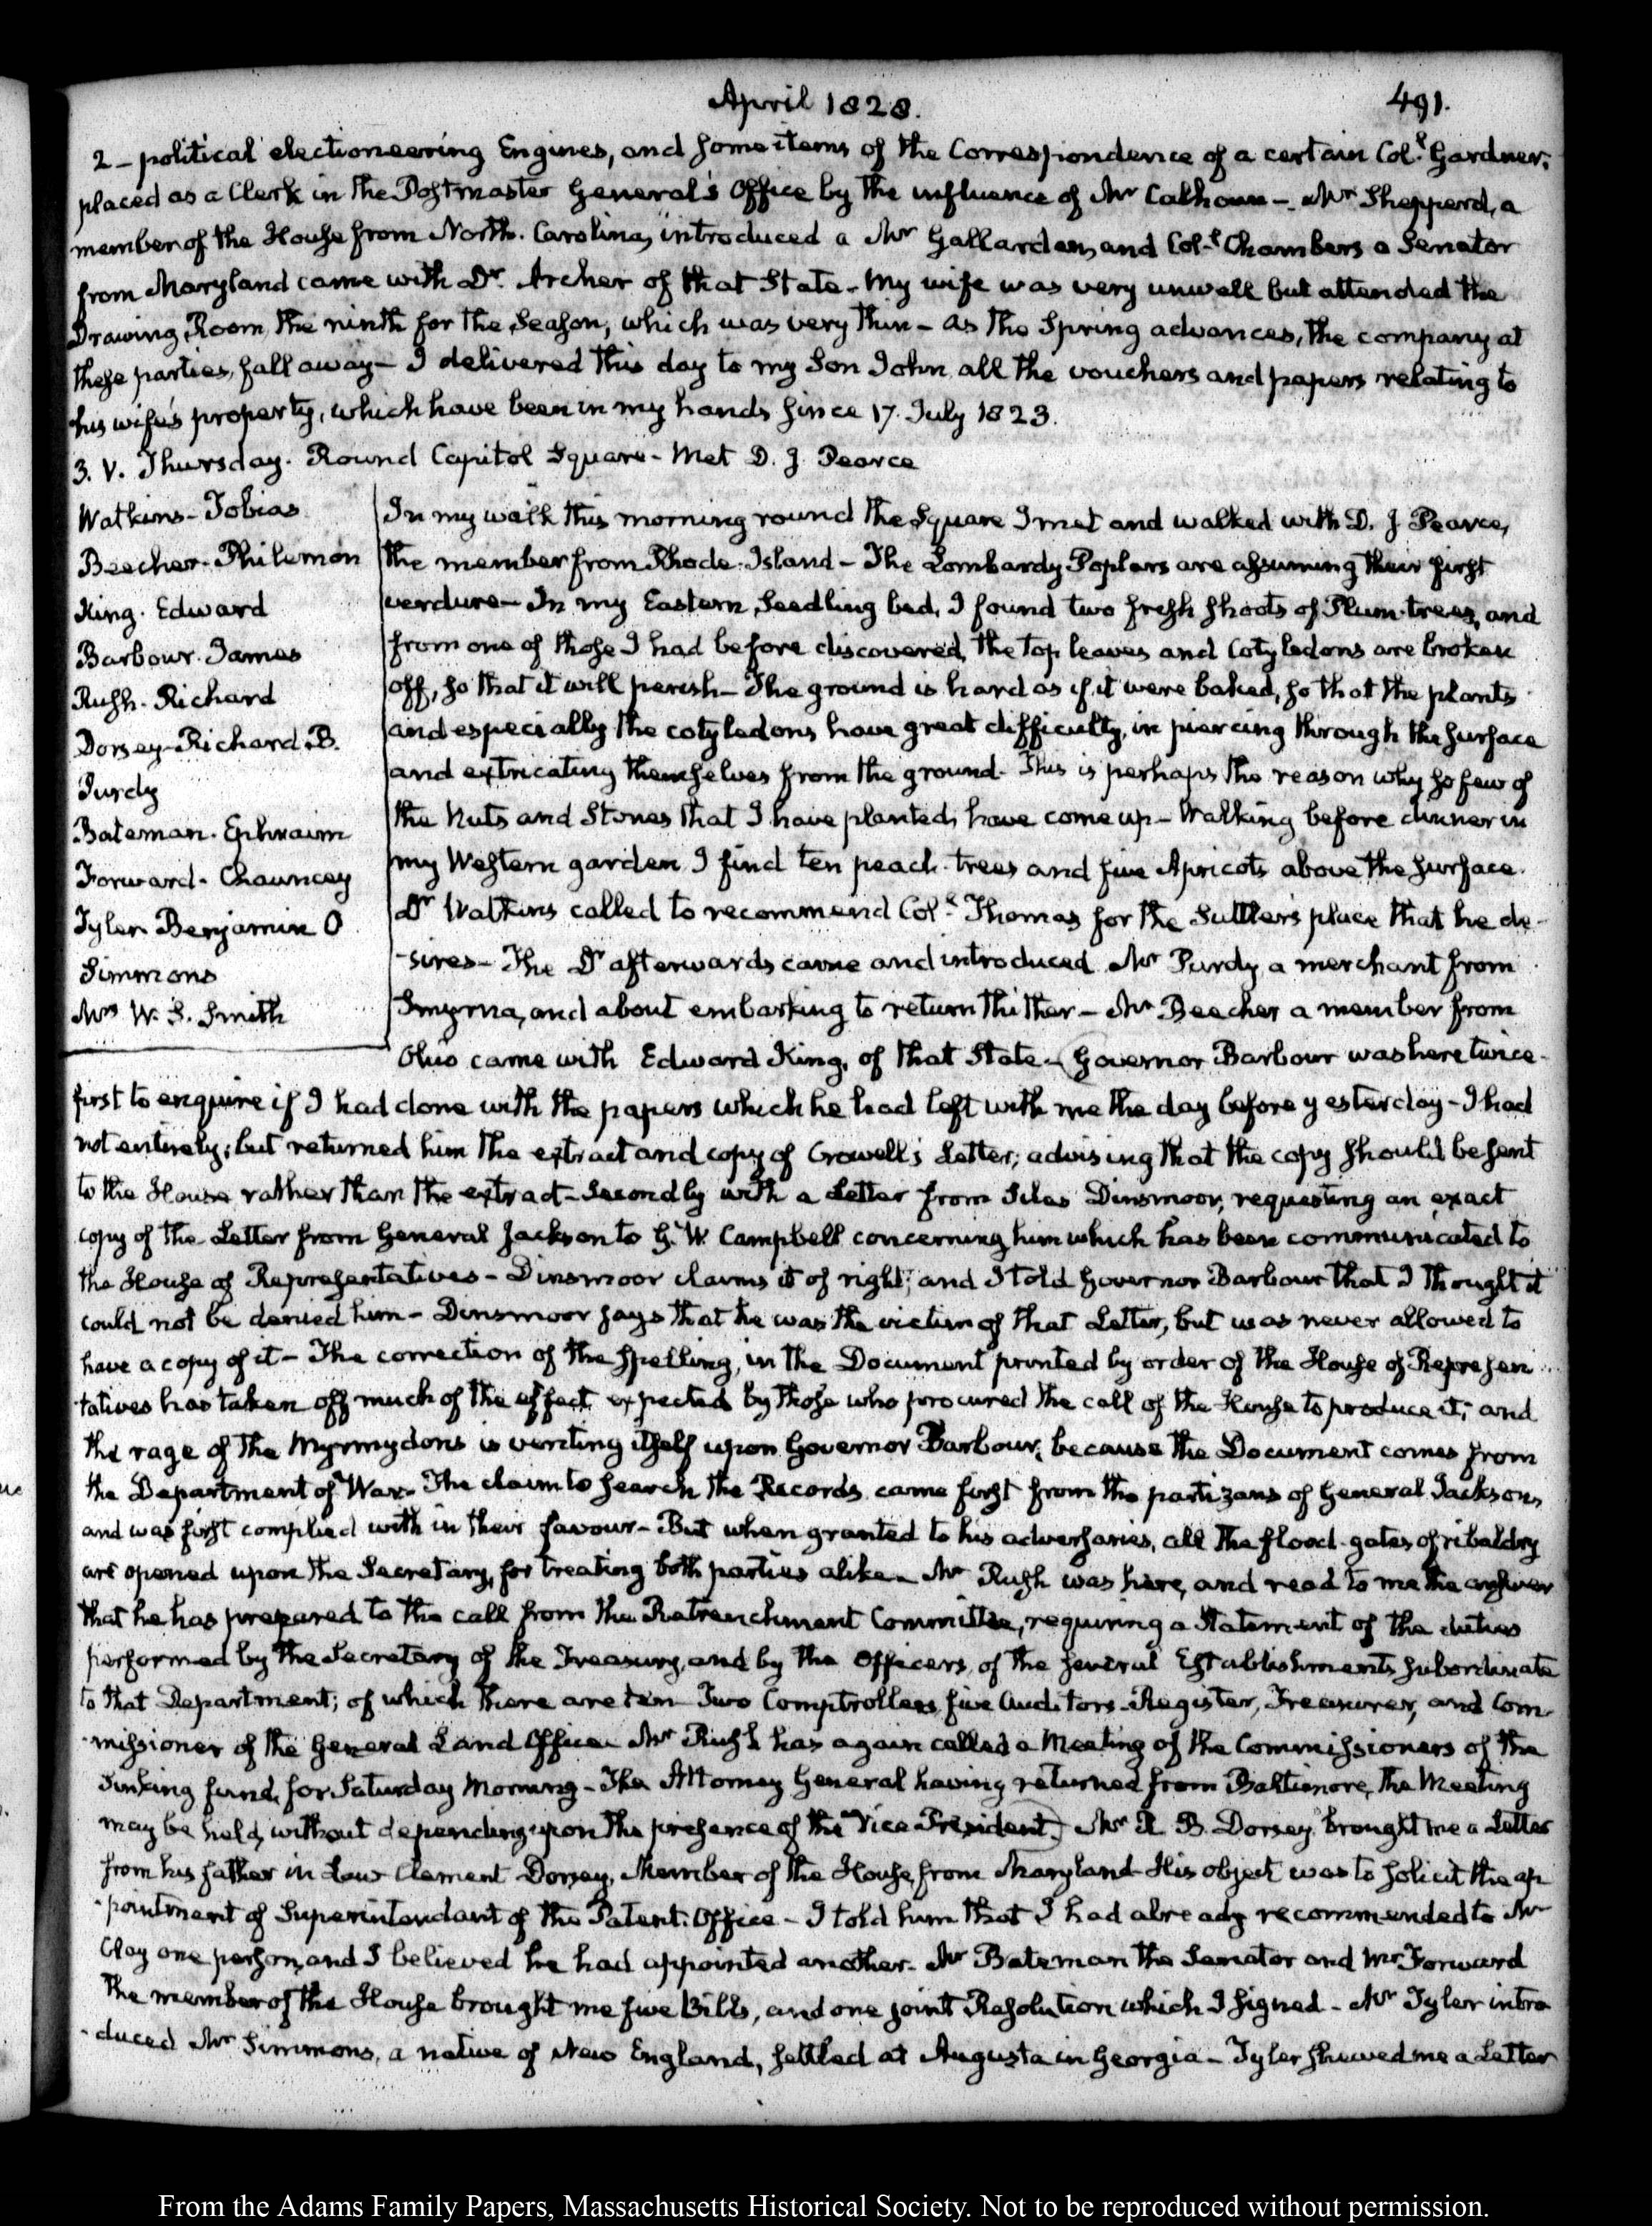 April 1828.
491.
2 – political electioneering Engines, and some items of the Correspondence of a certain Col.l Gardner,
placed as a Clerk in the Postmaster General's Office by the influence of Mr Calhoun –. Mr Shepperd, a
member of the House from North-Carolina, introduced a Mr Gallardan, and Col.l Chambers a Senator
from Maryland came with Dr. Archer of that State – My wife was very unwell but attended the
Drawing Room, the ninth for the Season, which was very thin – As the Spring advances, the company at
these parties, fall away – I delivered this day to my Son John all the vouchers and papers relating to
his wife's property, which have been in my hands since 17. July 1823.
3. V. Thursday. Round Capitol Square – Met D. J. Pearce
Watkins – Tobias
Beecher. Philemon
King. Edward
Barbour. James
Rush. Richard
Dorsey – Richard. B.
Purdy
Bateman. Ephraim
Forward. Chauncey
Tyler Benjamin O
Simmons
Mrs W. S. Smith
In my walk this morning round the Square I met and walked with D. J. Pearce,
the member from Rhode-Island – The Lombardy Poplars are assuming their first
verdure – In my Eastern Seedling bed, I found two fresh shoots of Plum-trees, and
from one of those I had before discovered, the top leaves and Cotyledons are broken
off, so that it will perish – The ground is hard as if it were baked, so that the plants
and especially the cotyledons have great difficulty, in piercing through the surface
and extricating themselves from the ground. This is perhaps the reason why so few of
the Nuts and Stones that I have planted, have come up – Walking before dinner in
my Western garden I find ten peach-trees and five Apricots above the surface.
Dr Watkins called to recommend Col.l Thomas for the Suttler's place that he de-
-sires – The Dr afterwards came and introduced Mr Purdy a merchant from
Smyrna, and about embarking to return thither – Mr Beecher a member from
Ohio came with Edward King, of that State – Governor Barbour was here twice –
first to enquire if I had done with the papers which he had left with me the day before yesterday – I had
not entirely; but returned him the extract and copy of Crowell's Letter; advising that the copy should be sent
to the House rather than the extract – Secondly with a Letter from Silas Dinsmoor, requesting an exact
copy of the Letter from General Jackson to G. W. Campbell concerning him which has been communicated to
the House of Representatives – Dinsmoor claims it of right; and I told Governor Barbour that I thought it
could not be denied him – Dinsmoor says that he was the victim of that Letter, but was never allowed to
have a copy of it – The correction of the spelling, in the Document printed by order of the House of Represen-
tatives has taken off much of the effect expected by those who procured the call of the House to produce it; and
the rage of the Myrmydons is venting itself upon Governor Barbour, because the Document comes from
the Department of War. The claim to search the Records came first from the partizans of General Jackson,
and was first complied with in their favour – But when granted to his adversaries, all the flood-gates of ribaldry
are opened upon the Secretary, for treating both parties alike – Mr Rush was here, and read to me the answer
that he has prepared to the call from the Retrenchment Committee, requiring a statement of the duties
performed by the Secretary of the Treasury, and by the Officers, of the several Establishments subordinate
to that Department; of which there are ten – Two Comptrollers, five Auditors – Register, Treasurer, and Com-
-missioner of the General Land Office – Mr Rush has again called a Meeting of the Commissioners of the
Sinking fund, for Saturday Morning – The Attorney General having returned from Baltimore, the Meeting
may be held, without depending upon the presence of the Vice President. Mr R. B. Dorsey brought me a Letter
from his father in Law Clement Dorsey, Member of the House, from Maryland – His object was to solicit the ap-
-pointment of Superintendant of the Patent-Office – I told him that I had already recommended to Mr
Clay one person, and I believed he had appointed another. Mr Bateman the Senator and Mr Forward
the member of the House brought me five Bills, and one joint Resolution which I signed – Mr Tyler intro-
-duced Mr Simmons, a native of New England, settled at Augusta in Georgia – Tyler shewed me a Letter
From the Adams Family Papers, Massachusetts Historical Society. Not to be reproduced without permission.